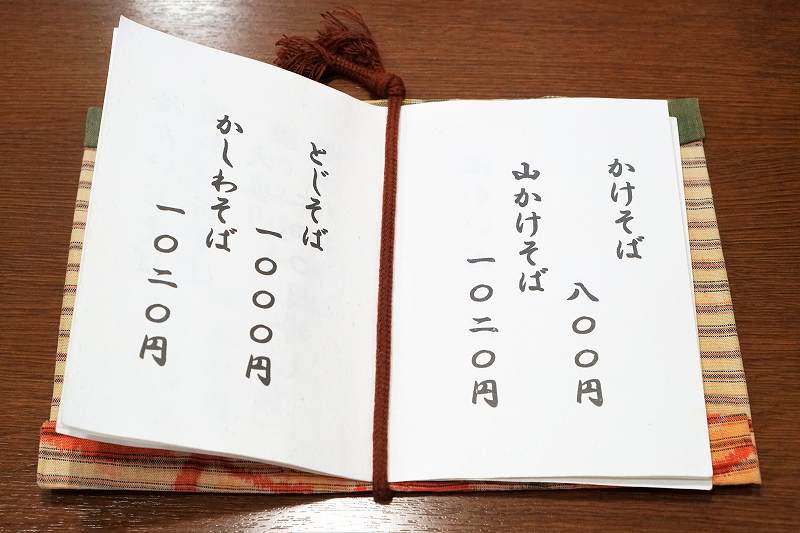 かけそば
八〇〇円
山かけそば
一〇二〇円
とじそば
一〇〇〇円
かしわそば
一〇二〇円